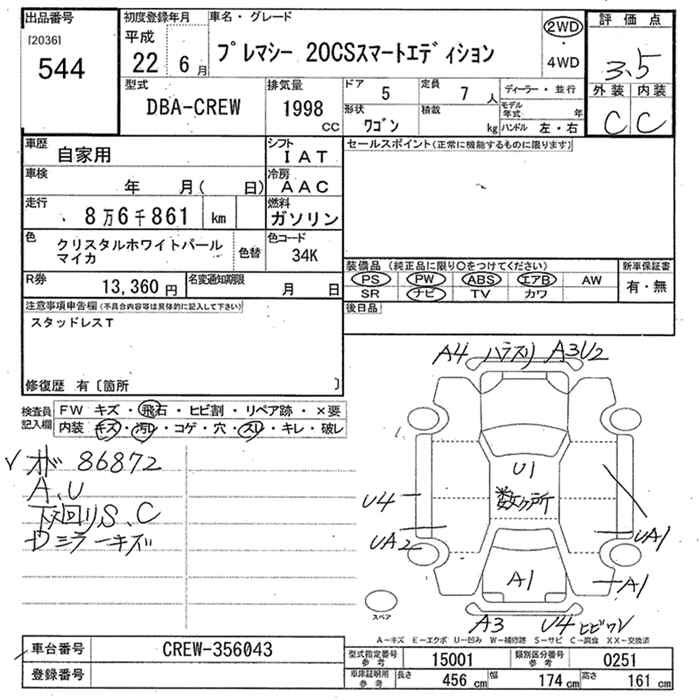 出品番号
[2036]
544
初度登録年月
平成
22 6月
車名・グレード
プレマシー 20CSスマートエディション
2WD
・
4WD
評価点
3.5
外装 内装
C C
型式
DBA-CREW
排気量
1998
cc
ドア
5
定員
7 人
形状
ワゴン
積載
kg
ディーラー・並行
モデル年式 年
ハンドル 左・右
車歴
自家用
シフト
IAT
車検
年 月( 日)
冷房
AAC
走行
8万6千861 km
燃料
ガソリン
色
クリスタルホワイトパール
マイカ
色替
色コード
34K
R券
13,360円
名変通知期限
月 日
セールスポイント(正常に機能するものに限ります)
装備品 (純正品に限り○をつけてください)
PS PW ABS エアB AW
SR ナビ TV カワ
新車保証書
有・無
後日品
注意事項申告欄(不具合内容等は具体的に記入して下さい)
スタッドレスT
修復歴 有〔箇所 〕
検査員
記入欄
FW キズ・飛石・ヒビ割・リペア跡・×要
内装 キズ・汚レ・コゲ・穴・スレ・キレ・破レ
✓ 86872
A、U
下回りS、C
Dミラーキズ
A4 A3U2
U1
数ヶ所
U4
UA2
UA1
A1
A1
A3 U4 ヒビワレ
スペア
A−キズ E−エクボ U−凹み W−補修跡 S−サビ C−腐食 XX−交換済
車台番号
CREW-356043
登録番号
型式指定番号
参考
15001
類別区分番号
参考
0251
車庫証明用
参考
長さ
456 cm
幅
174 cm
高さ
161 cm